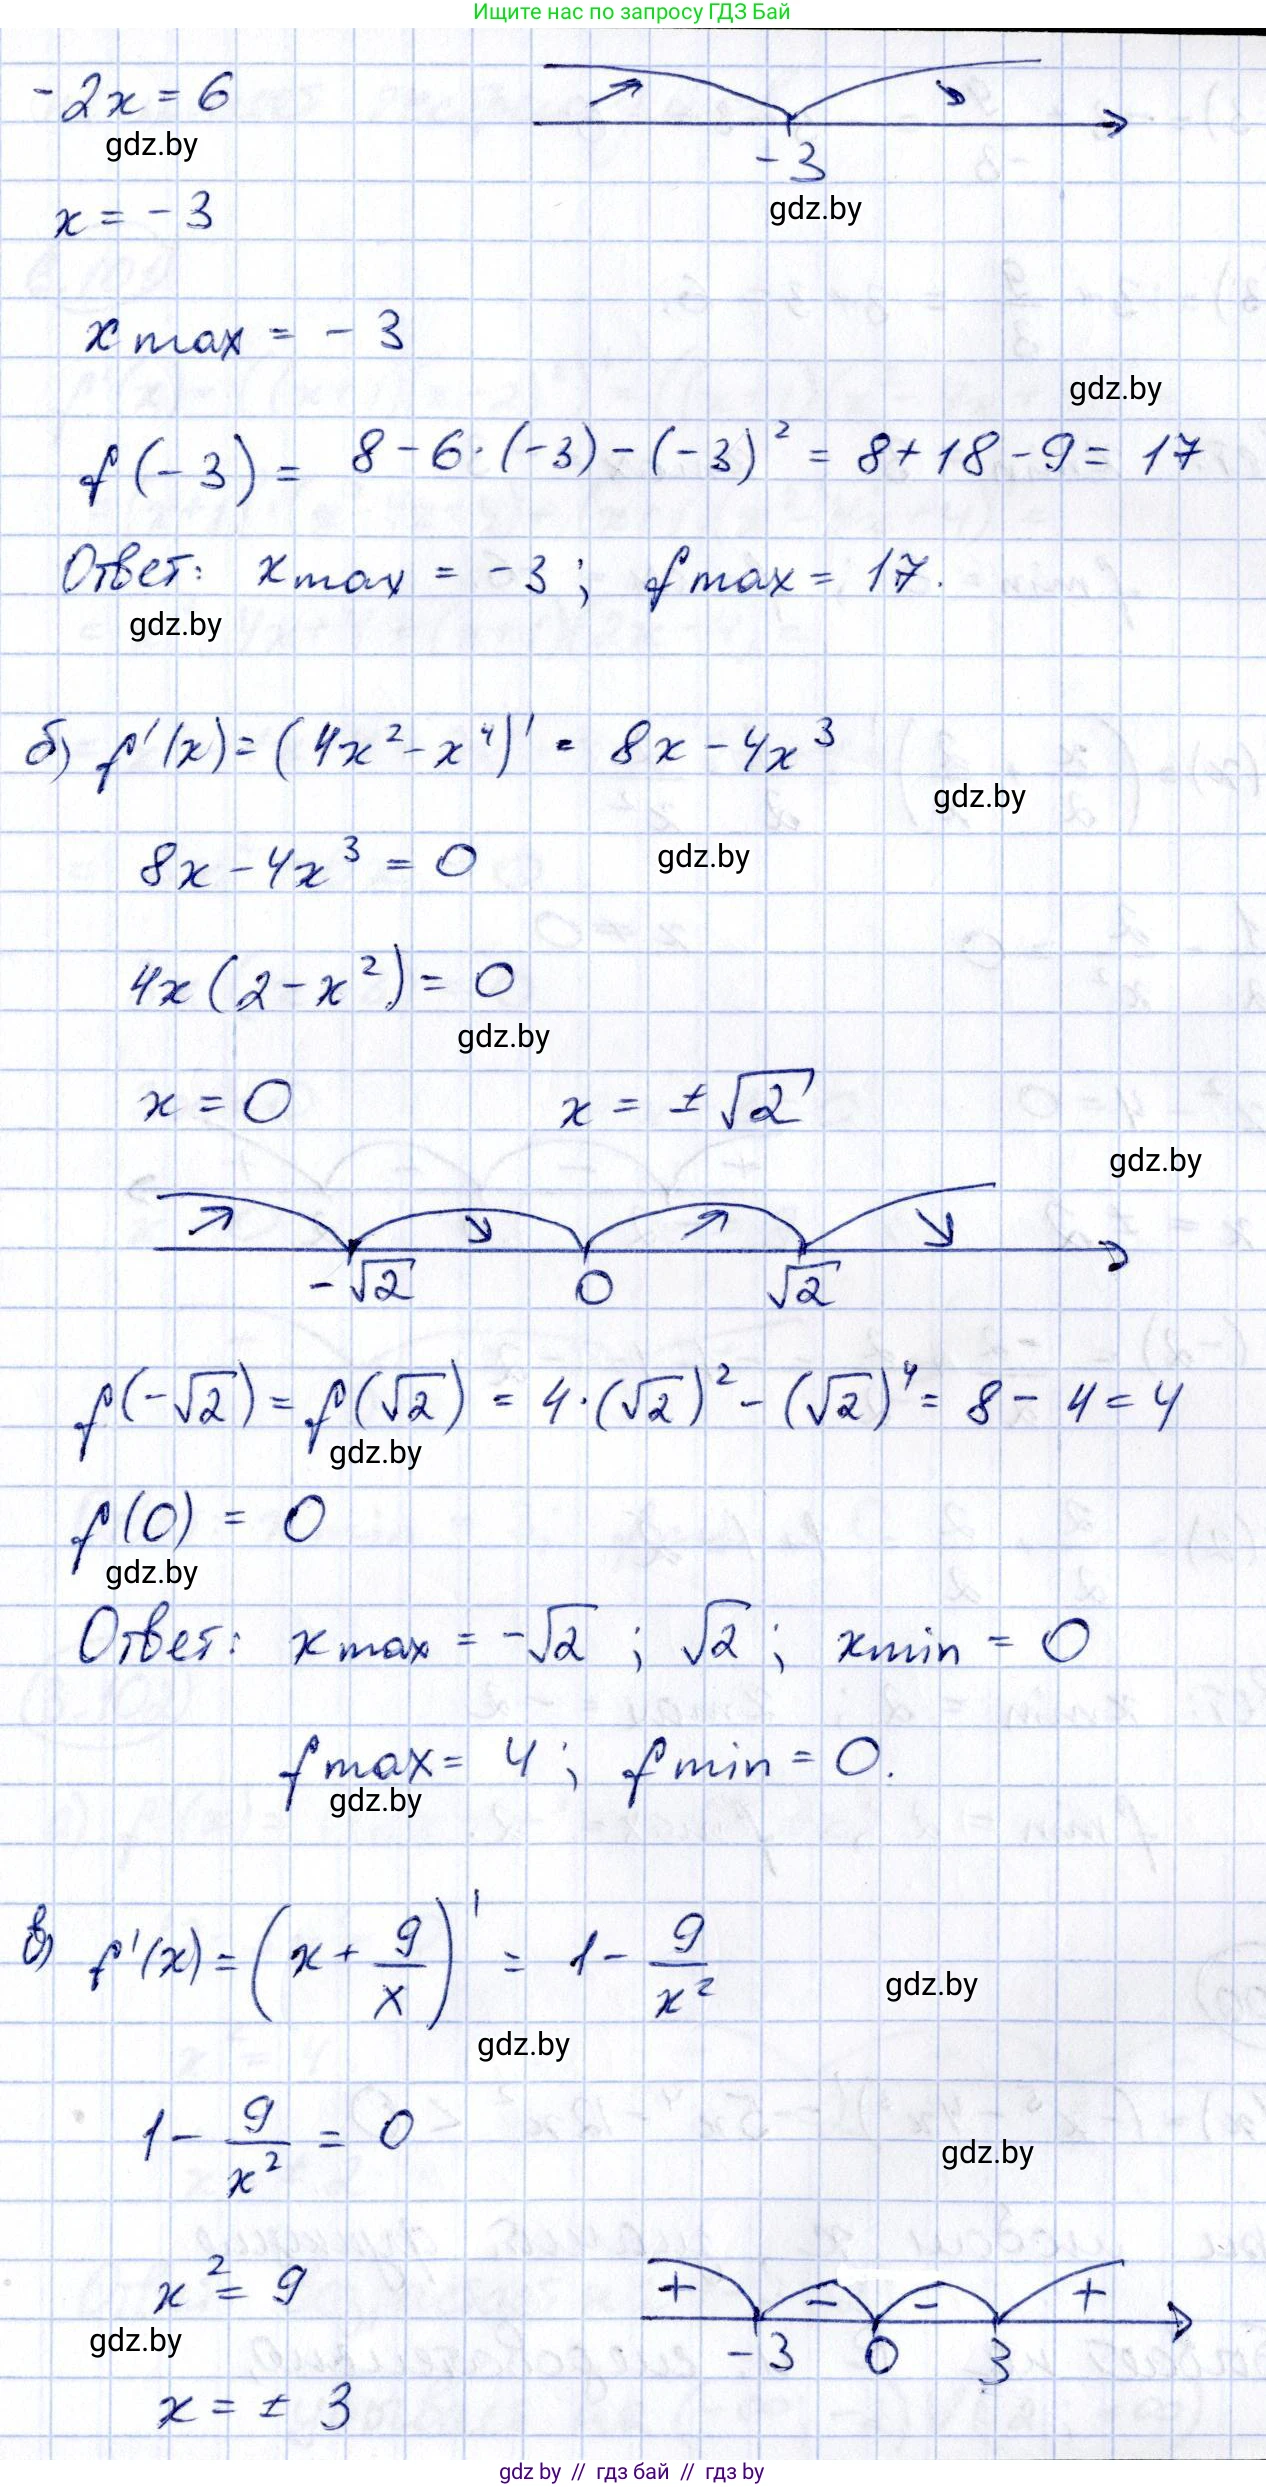 Ищите нас по запросу ГДЗ Бай
-2x = 6
gdz.by
-3
gdz.by
x = -3
x max = -3
gdz.by
f(-3) = 8 - 6·(-3) - (-3)² = 8 + 18 - 9 = 17
Ответ: x max = -3; f max = 17.
gdz.by
б) f'(x) = (4x² - x⁴)' = 8x - 4x³
gdz.by
8x - 4x³ = 0
gdz.by
4x(2 - x²) = 0
gdz.by
x = 0 x = ±√2
gdz.by
-√2 0 √2
f(-√2) = f(√2) = 4·(√2)² - (√2)⁴ = 8 - 4 = 4
gdz.by
f(0) = 0
gdz.by
Ответ: x max = -√2; √2; x min = 0
f max = 4; f min = 0.
gdz.by
в) f'(x) = (x + 9/x)' = 1 - 9/x²
gdz.by
gdz.by
1 - 9/x² = 0
gdz.by
x² = 9
+ - - +
gdz.by
-3 0 3
x = ± 3
gdz by // гдз бай // гдз by